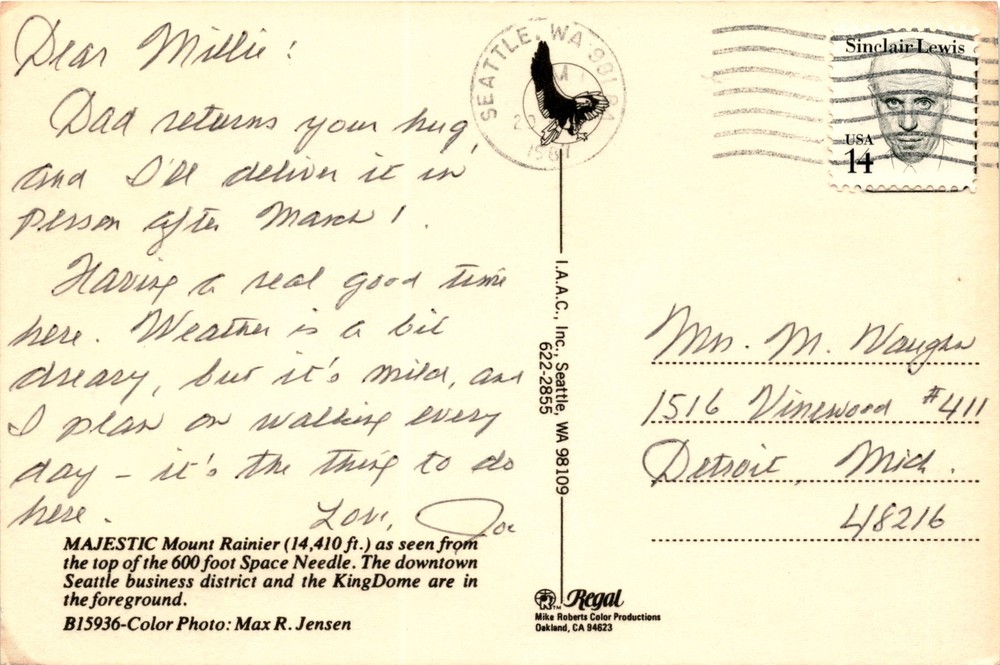 Dear Millie:
Dad returns your hug,
and I'll deliver it in
person after March 1.
Having a real good time
here. Weather is a bit
dreary, but it's mild, and
I plan on walking every
day – it's the thing to do
here. Love, Joe
MAJESTIC Mount Rainier (14,410 ft.) as seen from
the top of the 600 foot Space Needle. The downtown
Seattle business district and the KingDome are in
the foreground.
B15936-Color Photo: Max R. Jensen
SEATTLE, WA
I.A.A.C., Inc., Seattle, WA 98109
622-2855
Regal
TM
Mike Roberts Color Productions
Oakland, CA 94623
Sinclair Lewis
USA
14
Mrs. M. Vaughn
1516 Vinewood #411
Detroit, Mich.
48216